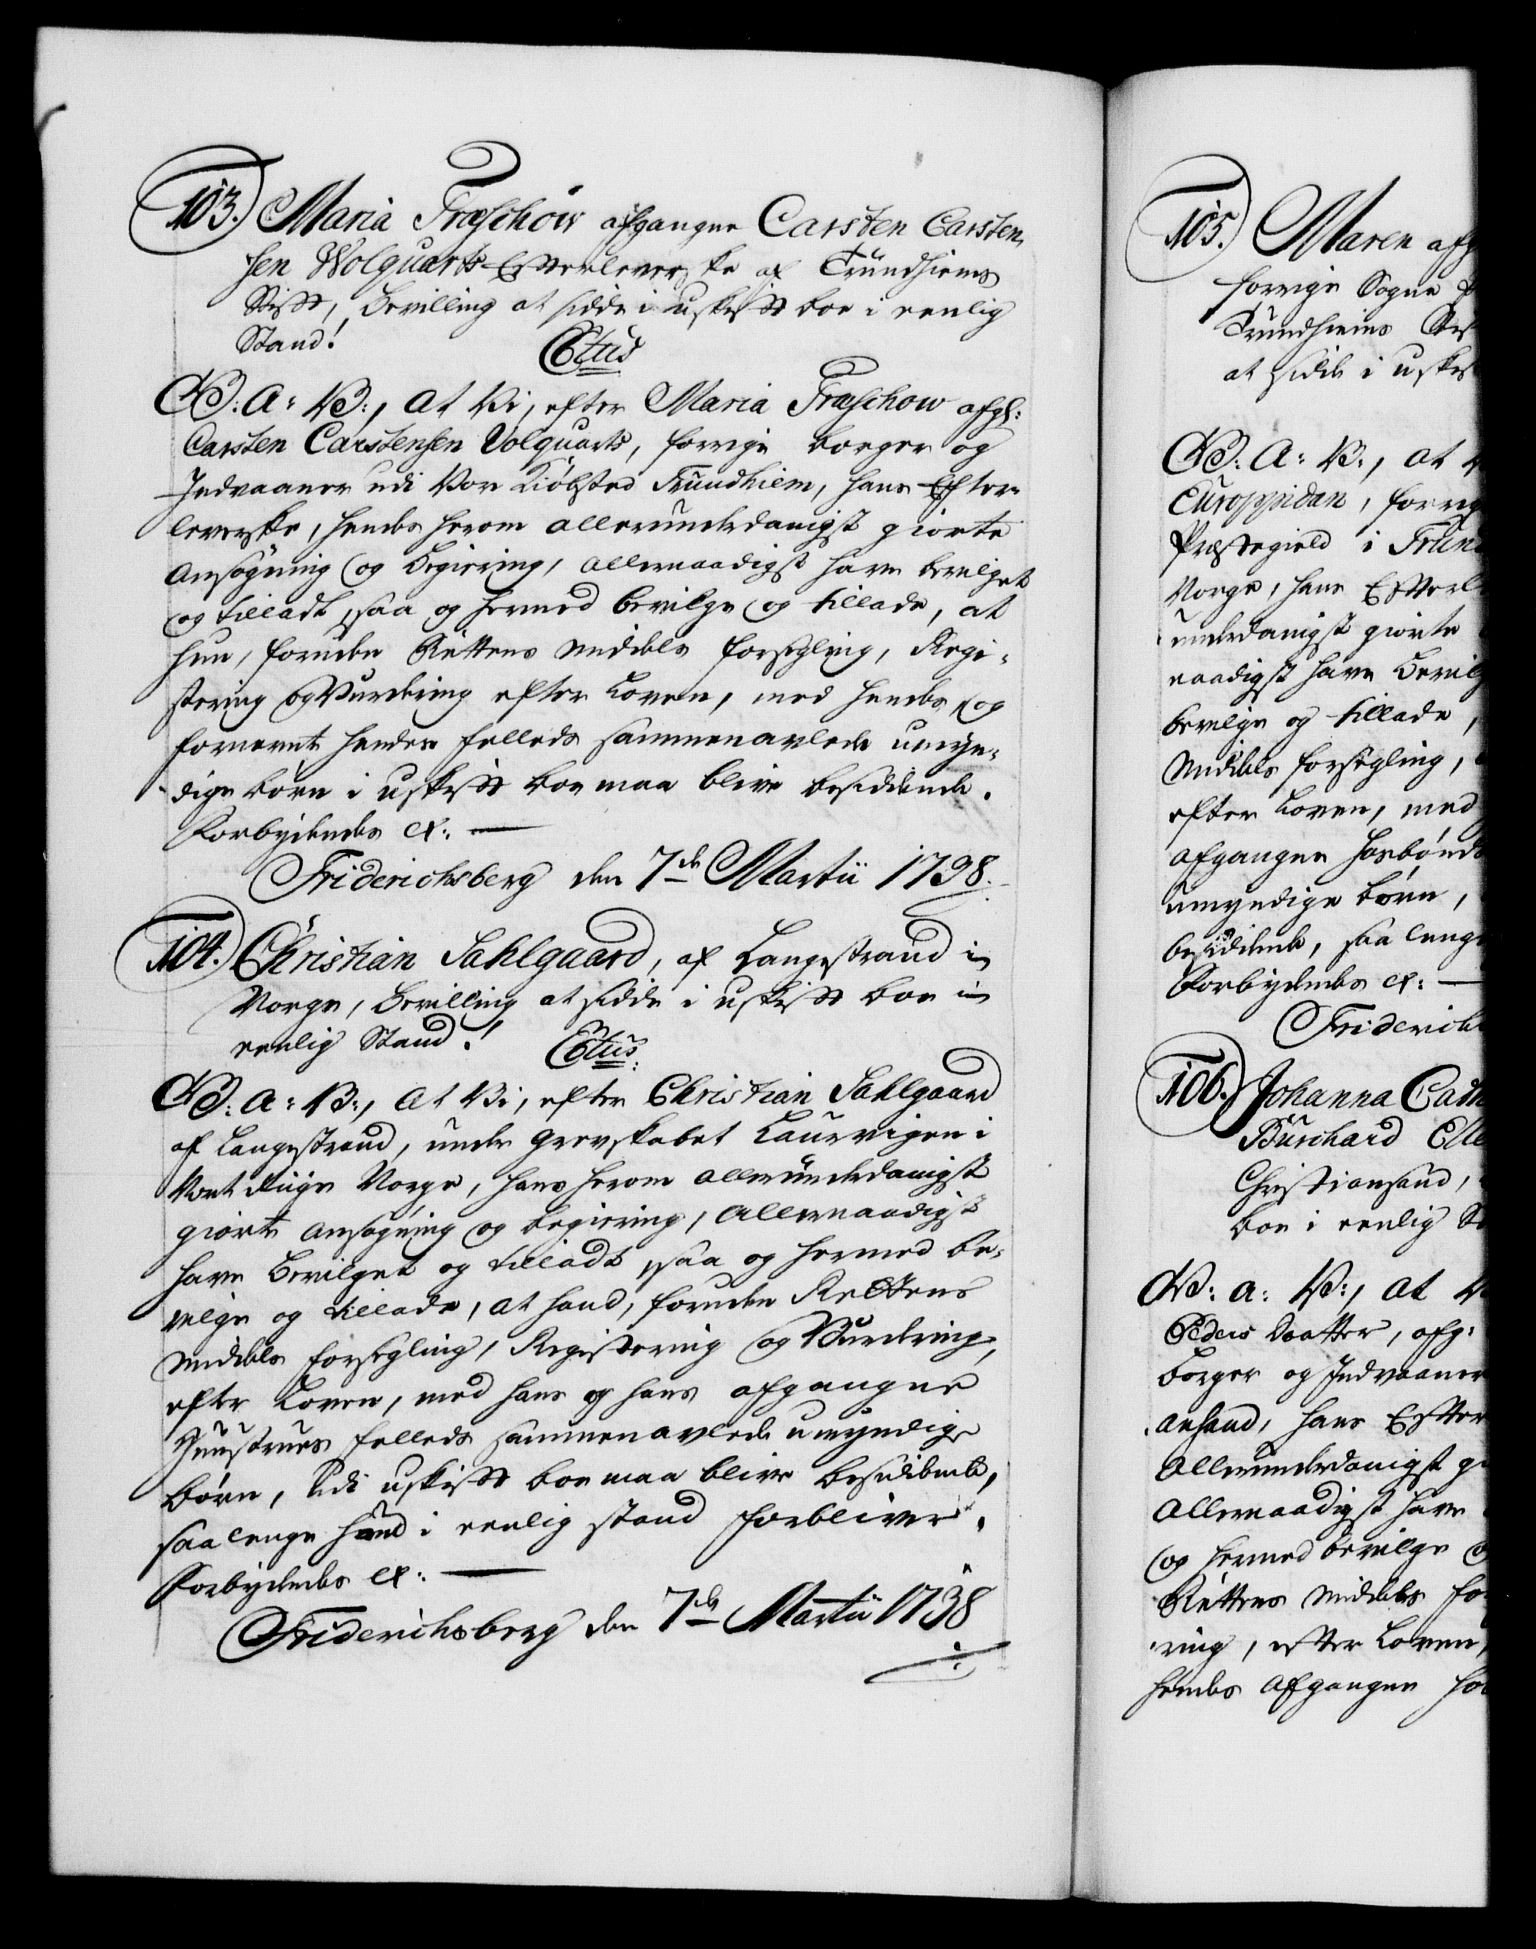 103. Maria Træschow afgangne Carsten Carsten-
sen Wolquarts Efterleverske af Trundhiems
Stift, Bevilling at sidde i uskift boe i eenlig
Stand!
C6tus
G. B: A: V:, at Vi, efter Maria Træschow afgl:
Carsten Carstensen Volquarts, forrige borger og
Indvaaner udi Vor Kiøbsted Trundhiem, hans Efter-
leverske, hendes herom allerunderdanigst giorte
Ansøgning og Begiering, allernaadigst have bevilget
og tilladt, saa og hermed bevilge og tillade, at
hun, foruden Rettens Middels forsegling, Regi-
stering og Vurdering efter Loven, med hendes og
fornevnte hendes felleds sammenavlede umyn-
dige børn i uskift boe maa blive besiddende.
Forbydendes etc: —
Friderichsberg den 7de Martii 1738.
104. Christian Sahlgaard, af Langestrand i
Norge, Bevilling at sidde i uskift boe i
eenlig Stand!
C6tus
G. B: A: V:, at Vi, efter Christian Sahlgaard
af Langestrand, under Grevskabet Laurvigen i
Vort Riige Norge, hans herom allerunderdanigst
giorte ansøgning og begiering, allernaadigst
have bevilget og tilladt, saa og hermed be-
vilge og tillade, at hand, foruden Rettens
Middels forsegling, Registering og Vurdering,
efter Loven, med hans og hans afgangne
Huustrues felleds sammenavlede umyndige
børn, udi uskift boe maa blive besiddende,
saalenge hand i eenlig stand forbliver.
Forbydendes etc: —
Friderichsberg den 7de Martii 1738
105. Maren afg
forrige Sogne P
Trundhiems Stif
at sidde i uskif
G. B: A: V:, at V
Europpidan, forrig
Præstegield i Trun
Norge, hans Efterl
underdanigst giorte
naadigst have Bevilg
bevilge og tillade,
Middels forsegling,
efter Loven, med
afgangne Hosbonds
umyndige børn,
besiddende, saa lenge
Forbydendes etc: —
Friderich
106. Johanna Cath
Burchard Elle
Christiansand,
boe i eenlig St
G. B: A: V:, at V
Peders Daatter, afg:
borger og Indvaaner
ansand, hans Efter
allerunderdanigst gi
allernaadigst have
og hermed bevilge o
Rettens Middels for
ring, efter Loven,
hendes afgangne Hos